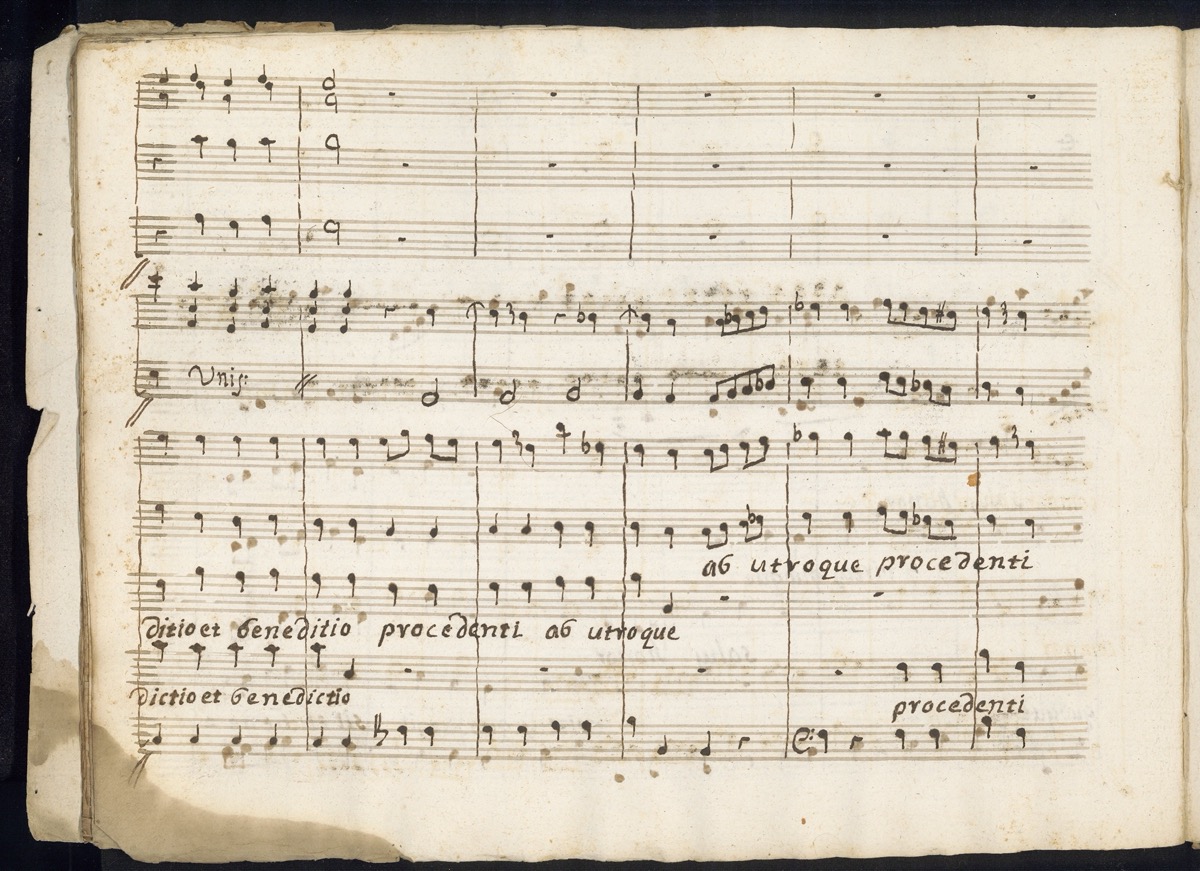 Unis:
ab utroque procedenti
ditio et beneditio procedenti ab utroque
dictio et benedictio
procedenti